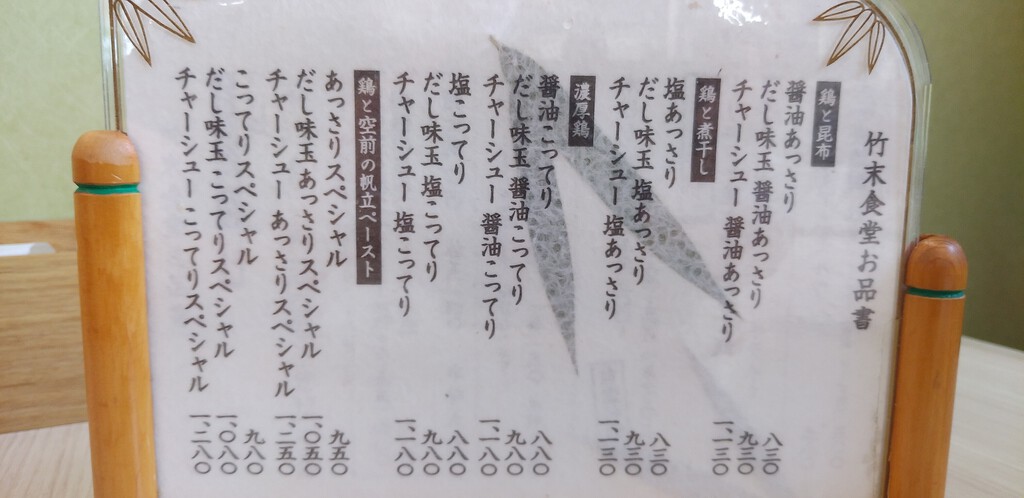 竹末食堂お品書
鶏と昆布
醤油あっさり 八三〇
だし味玉 醤油あっさり 九三〇
チャーシュー 醤油あっさり 一、一三〇
鶏と煮干し
塩あっさり 八三〇
だし味玉 塩あっさり 九三〇
チャーシュー 塩あっさり 一、一三〇
濃厚鶏
醤油こってり 八八〇
だし味玉 醤油こってり 九八〇
チャーシュー 醤油こってり 一、一八〇
塩こってり 八八〇
だし味玉 塩こってり 九八〇
チャーシュー 塩こってり 一、一八〇
鶏と空前の帆立ペースト
あっさりスペシャル 九五〇
だし味玉 あっさりスペシャル 一、〇五〇
チャーシュー あっさりスペシャル 一、二五〇
こってりスペシャル 九八〇
だし味玉 こってりスペシャル 一、〇八〇
チャーシュー こってりスペシャル 一、二八〇